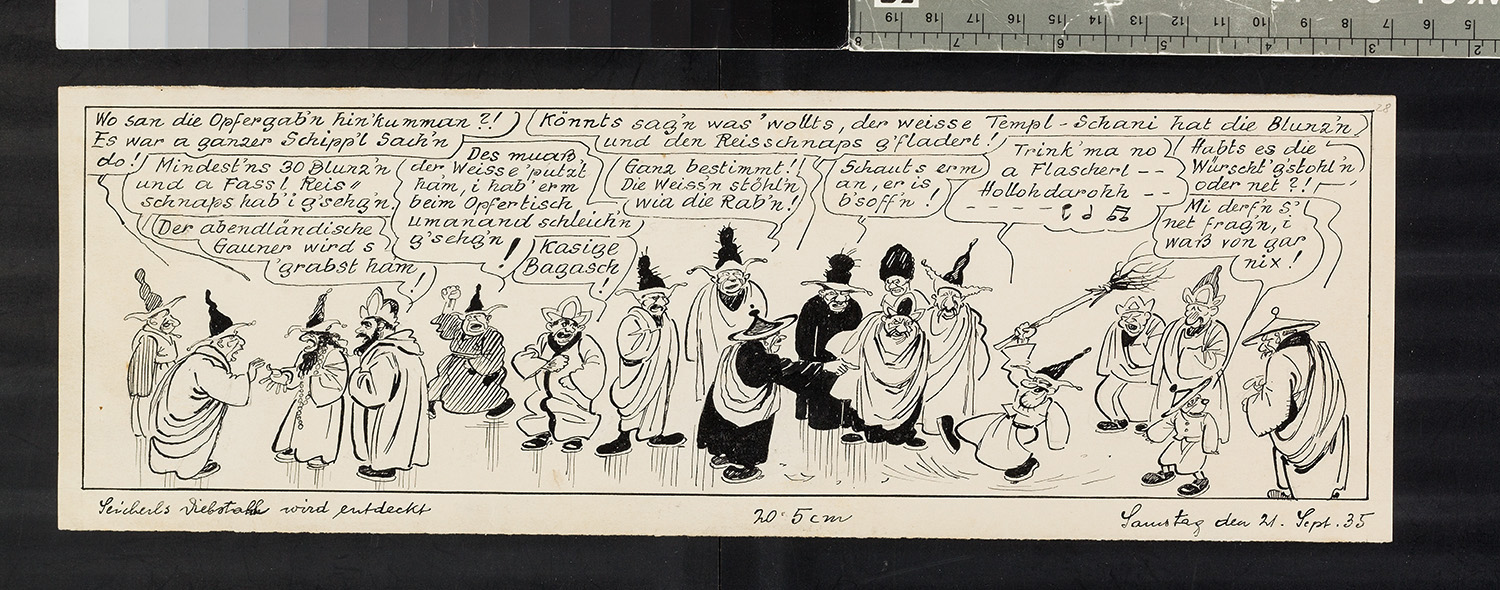 Wo san die Opfergab'n hin'kumman ?!
Es war a ganzer Schipp'l Sach'n
do!
Könnts sag'n was' wollts, der weisse Templ-Schani hat die Blunz'n
und den Reisschnaps g'fladert!
Mindest'ns 30 Blunz'n
und a Fassl Reis"
schnaps hab' i g'sehg'n
Der abendländische
Gauner wird s
'grabst ham!
Des muaß
der Weisse 'putzt
ham, i hab' erm
beim Opfertisch
umanand schleich'n
g'sehg'n!
Kasige
Bagasch!
Ganz bestimmt!
Die Weiss'n stöhl'n
wia die Rab'n!
Schauts erm
an, er is
b'soff'n!
Trink' ma no
a Flascherl --
Hollohdarohh --
Habts es die
Würscht' g'stohl'n
oder net ?!
Mi derf'n S'
net frag'n, i
waß von gar
nix!
Seicherls Diebstahl wird entdeckt
20·5 cm
Samstag den 21. Sept. 35
28
19 18 17 16 15 14 13 12 11 10 9 8 7 6 5
8 7 6 5 4 3 2